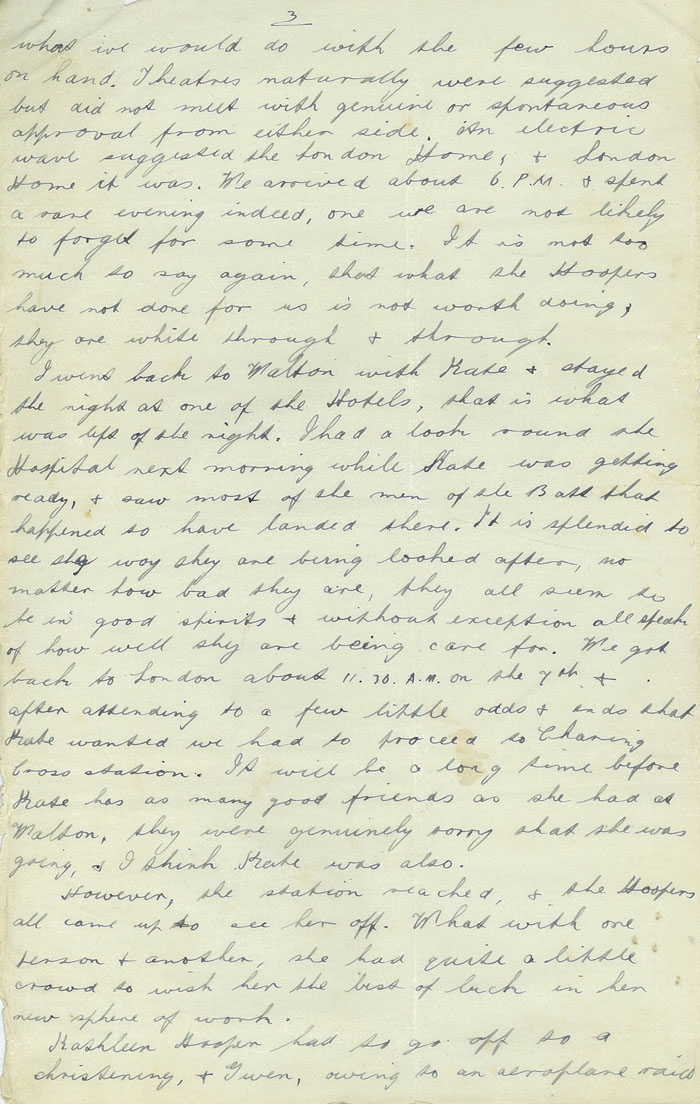 3
what we would do with the few hours
on hand. Theatres naturally were suggested
but did not meet with genuine or spontaneous
approval from either side. An electric
wave suggested the London Home, & London
Home it was. We arrived about 6. P.M. & spent
a rare evening indeed, one we are not likely
to forget for some time. It is not too
much to say again, that what the Hoopers
have not done for us is not worth doing,
they are white through & through.
I went back to Walton with Kate & stayed
the night at one of the Hotels, that is what
was left of the night. I had a look round the
Hospital next morning while Kate was getting
ready, & saw most of the men of the Batt that
happened to have landed there. It is splendid to
see the way they are being looked after, no
matter how bad they are, they all seem to
be in good spirits & without exception all speak
of how well they are being care for. We got
back to London about 11.30. A.M. on the 7th &
after attending to a few little odds & ends that
Kate wanted we had to proceed to Charing
Cross station. It will be a long time before
Kate has as many good friends as she had at
Walton, they were genuinely sorry that she was
going, & I think Kate was also.
However, the station reached, & the Hoopers
all came up to see her off. What with one
person & another, she had quite a little
crowd to wish her the best of luck in her
new sphere of work.
Kathleen Hooper had to go off to a
christening, & Gwen, owing to an aeroplane raid